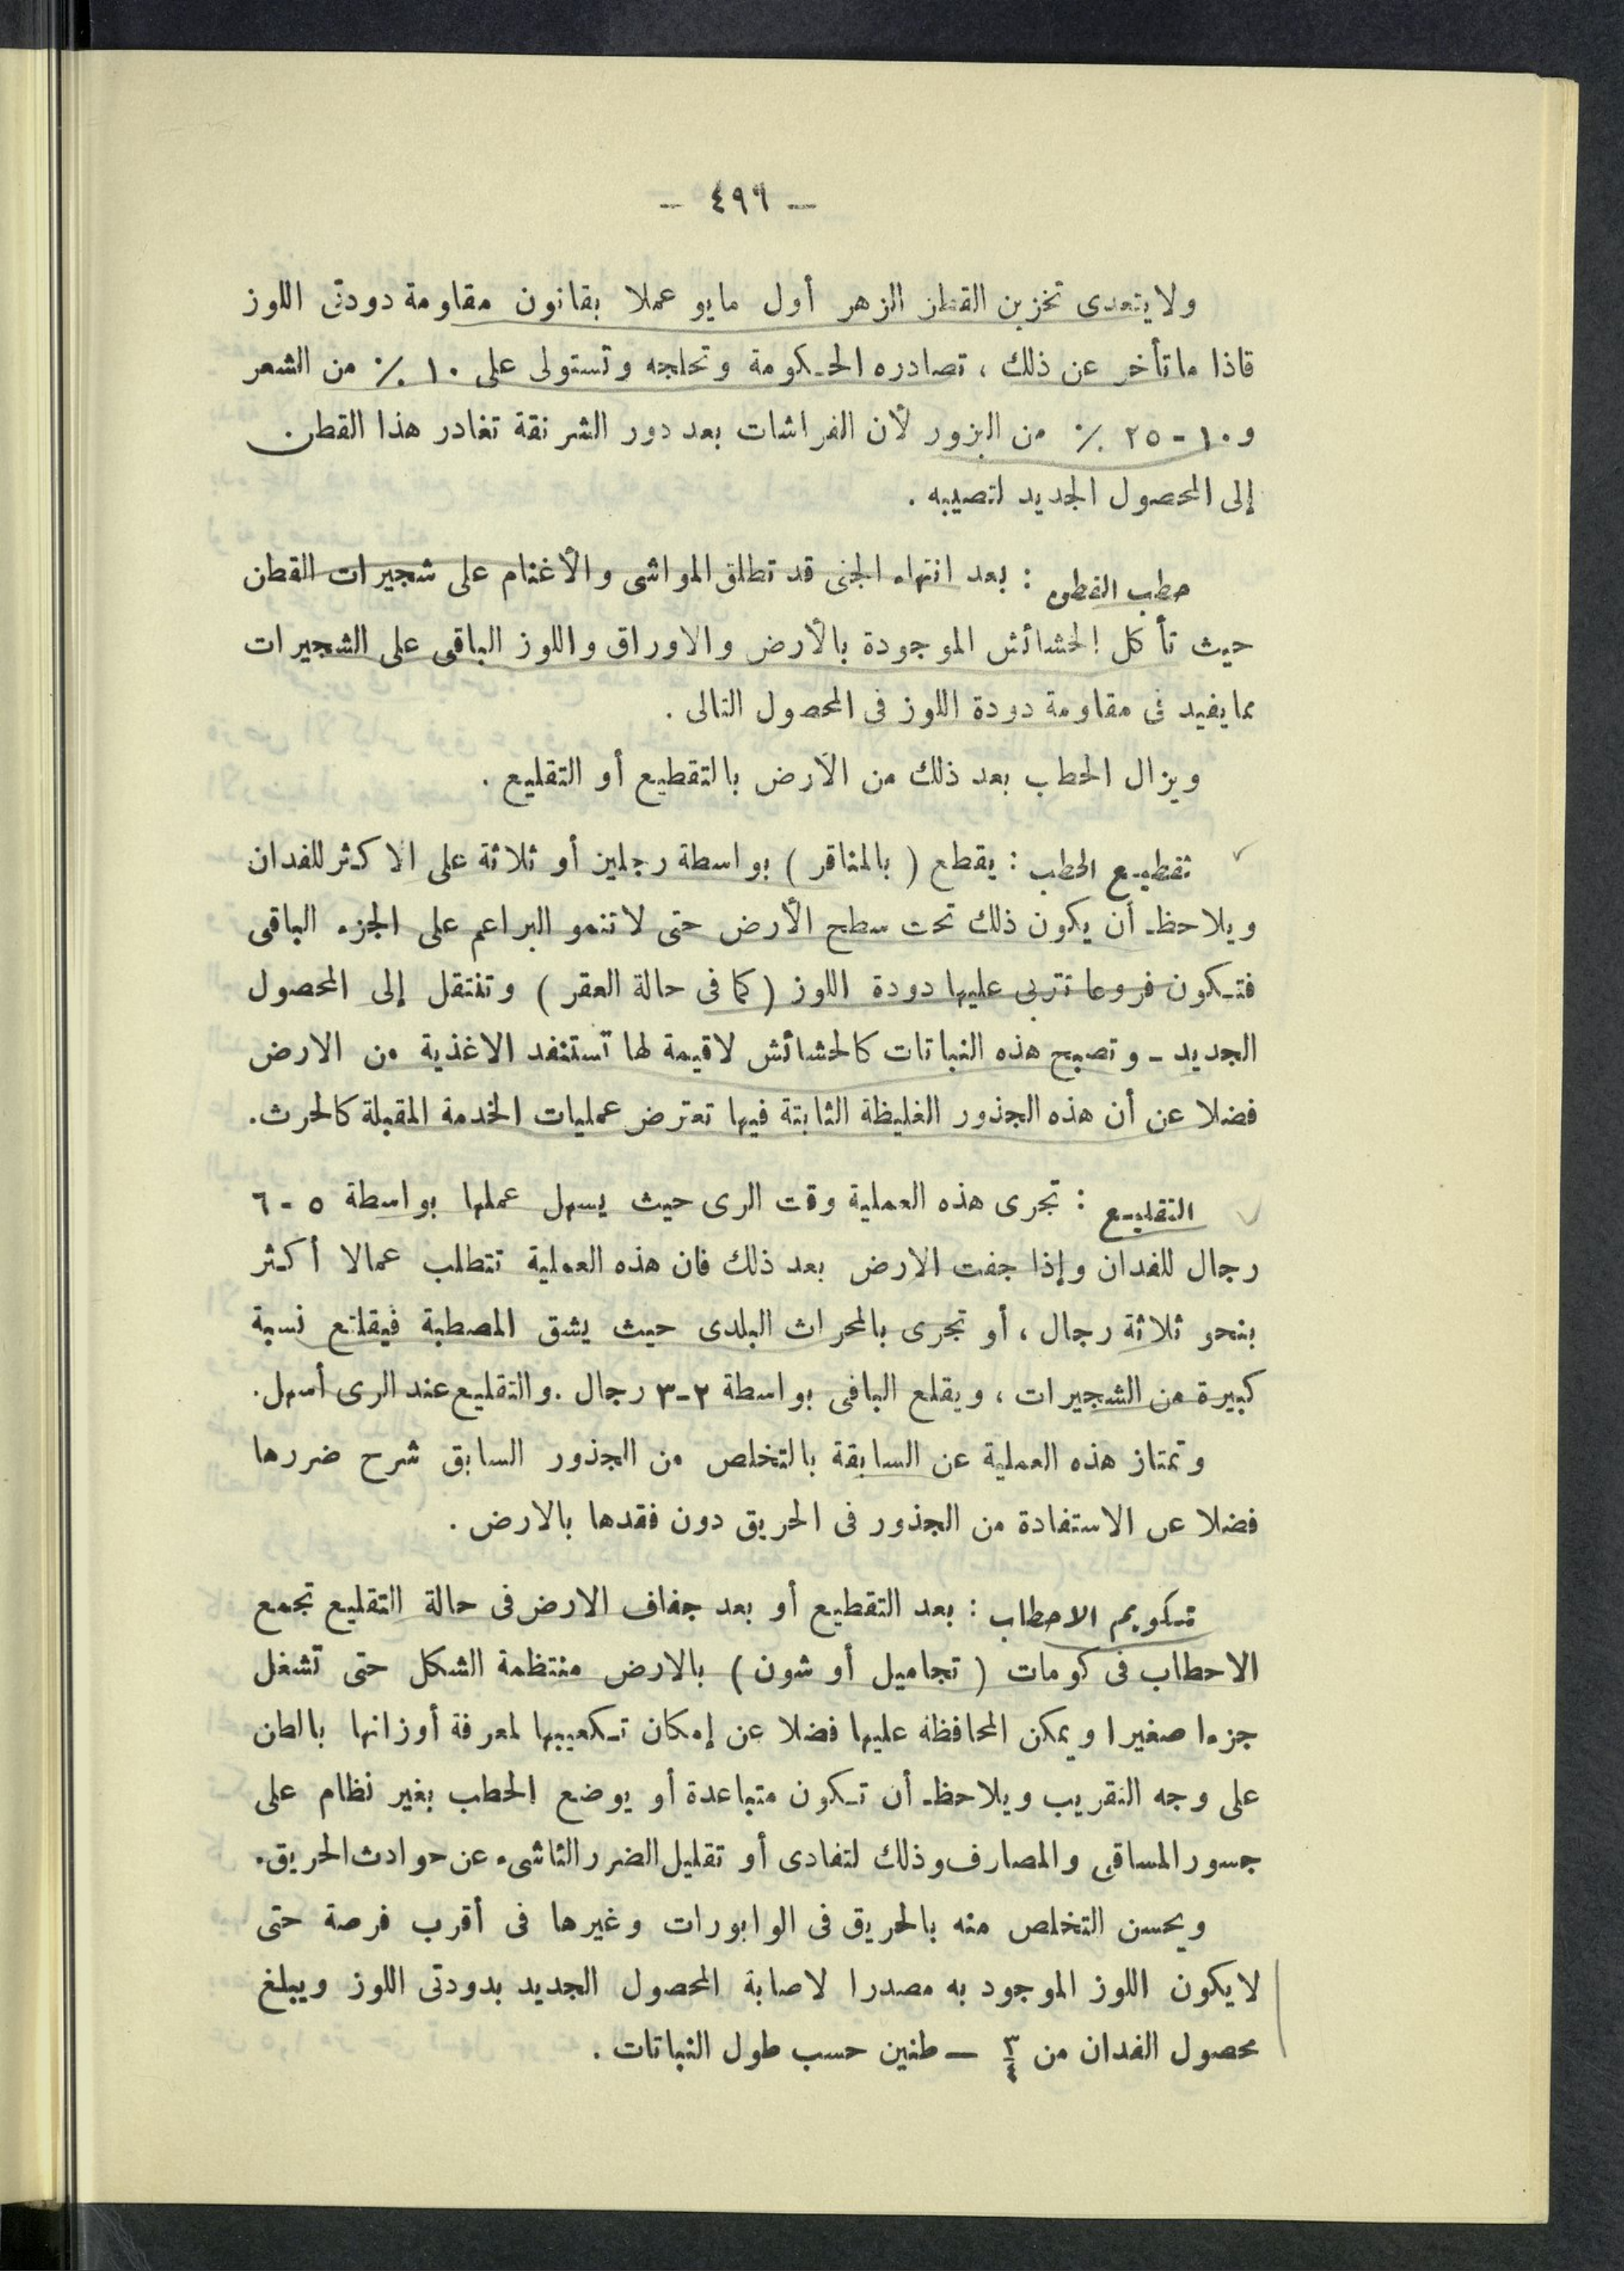 — ٤٩٦ —
ولا يتعدى تخزين القطن الزهر أول مايو عملا بقانون مقاومة دودتى اللوز
فاذا ما تأخر عن ذلك ، تصادره الحكومة وتحلجه وتستولى على ١٠ ٪ من الشعر
و ١٠ - ٢٥ ٪ من البزور لأن الفراشات بعد دور الشرنقة تغادر هذا القطن
إلى المحصول الجديد لتصيبه .
حطب القطن : بعد انتهاء الجنى قد تطلق المواشى والأغنام على شجيرات القطن
حيث تأكل الحشائش الموجودة بالأرض والاوراق واللوز الباقى على الشجيرات
مما يفيد فى مقاومة دودة اللوز فى المحصول التالى .
ويزال الحطب بعد ذلك من الأرض بالتقطيع أو التقليع .
تقطيع الحطب : يقطع ( بالمناقر ) بواسطة رجلين أو ثلاثة على الاكثر للفدان
ويلاحظ أن يكون ذلك تحت سطح الأرض حتى لا تنمو البراعم على الجزء الباقى
فتكون فروعا تتربى عليها دودة اللوز ( كما فى حالة العقر ) وتنتقل إلى المحصول
الجديد - وتصبح هذه النباتات كالحشائش لاقيمة لها تستنفد الاغذية من الارض
فضلا عن أن هذه الجذور الغليظة الثابتة فيها تعترض عمليات الخدمة المقبلة كالحرث.
التقليع : تجرى هذه العملية وقت الرى حيث يسهل عملها بواسطة ٥ - ٦
رجال للفدان وإذا جفت الارض بعد ذلك فان هذه العملية تتطلب عمالا أكثر
بنحو ثلاثة رجال ، أو تجرى بالمحراث البلدى حيث يشق المصطبة فيقلتع نسبة
كبيرة من الشجيرات ، ويقلع الباقى بواسطة ٢-٣ رجال . والتقليع عند الرى أسهل.
وتمتاز هذه العملية عن السابقة بالتخلص من الجذور السابق شرح ضررها
فضلا عن الاستفادة من الجذور فى الحريق دون فقدها بالارض .
تكويم الاحطاب : بعد التقطيع أو بعد جفاف الارض فى حالة التقليع تجمع
الاحطاب فى كومات ( تجاميل أو شون ) بالارض منتظمة الشكل حتى تشغل
جزءا صغيرا ويمكن المحافظة عليها فضلا عن إمكان تكعيبها لمعرفة أوزانها بالطن
على وجه التقريب ويلاحظ أن تكون متباعدة أو يوضع الحطب بغير نظام على
جسور المساقى والمصارف وذلك لتفادى أو تقليل الضرر الناشىء عن حوادث الحريق.
ويحسن التخلص منه بالحريق فى الوابورات وغيرها فى أقرب فرصة حتى
لا يكون اللوز الموجود به مصدرا لاصابة المحصول الجديد بدودتى اللوز ويبلغ
محصول الفدان من ٣/٤ — طنين حسب طول النباتات .